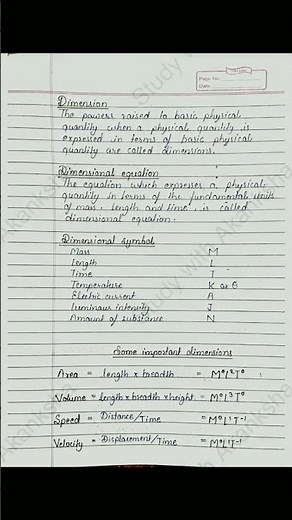 Page No.
Date
Dimension
The powers raised to basic physical
quantity when a physical quantity is
expressed in terms of basic physical
quantity are called dimensions.
Dimensional equation
The equation which expresses a physical
quantity in terms of the fundamental units
of mass, length and time, is called
dimensional equation.
Dimensional symbol
Mass M
Length L
Time T
Temperature K or θ
Electric current A
Luminous intensity J
Amount of substance N
Some important dimensions
Area = length × breadth = M⁰L²T⁰
Volume = length × breadth × height = M⁰L³T⁰
Speed = Distance/Time = M⁰L¹T⁻¹
Velocity = Displacement/Time = M⁰L¹T⁻¹
Study with Akanksha